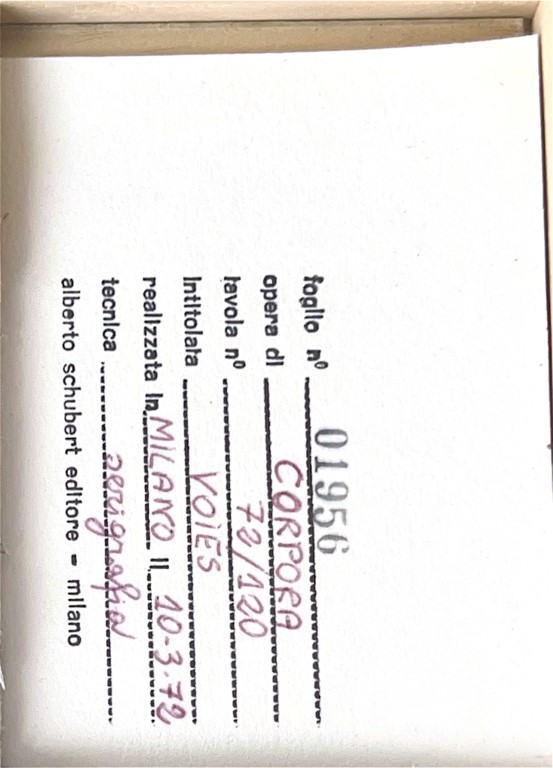 foglio nº 01956
opera di CORPORA
tavola nº 72/120
intitolata VOIES
realizzata in MILANO il 10-3-72
tecnica serigrafia
alberto schubert editore - milano